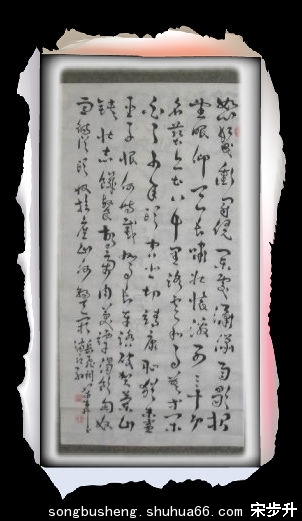 怒髮衝冠憑欄處瀟瀟雨歇抬
望眼仰天長嘯壯懷激烈三十功
名塵與土八千里路雲和月莫等閒
白了少年頭空悲切靖康恥猶未雪
臣子恨何時滅駕長車踏破賀蘭山
缺壯志飢餐胡虜肉笑談渴飲匈奴
血待從頭收拾舊山河朝天闕
岳飛詞
滿江紅
songbusheng.shuhua66.com 宋步升